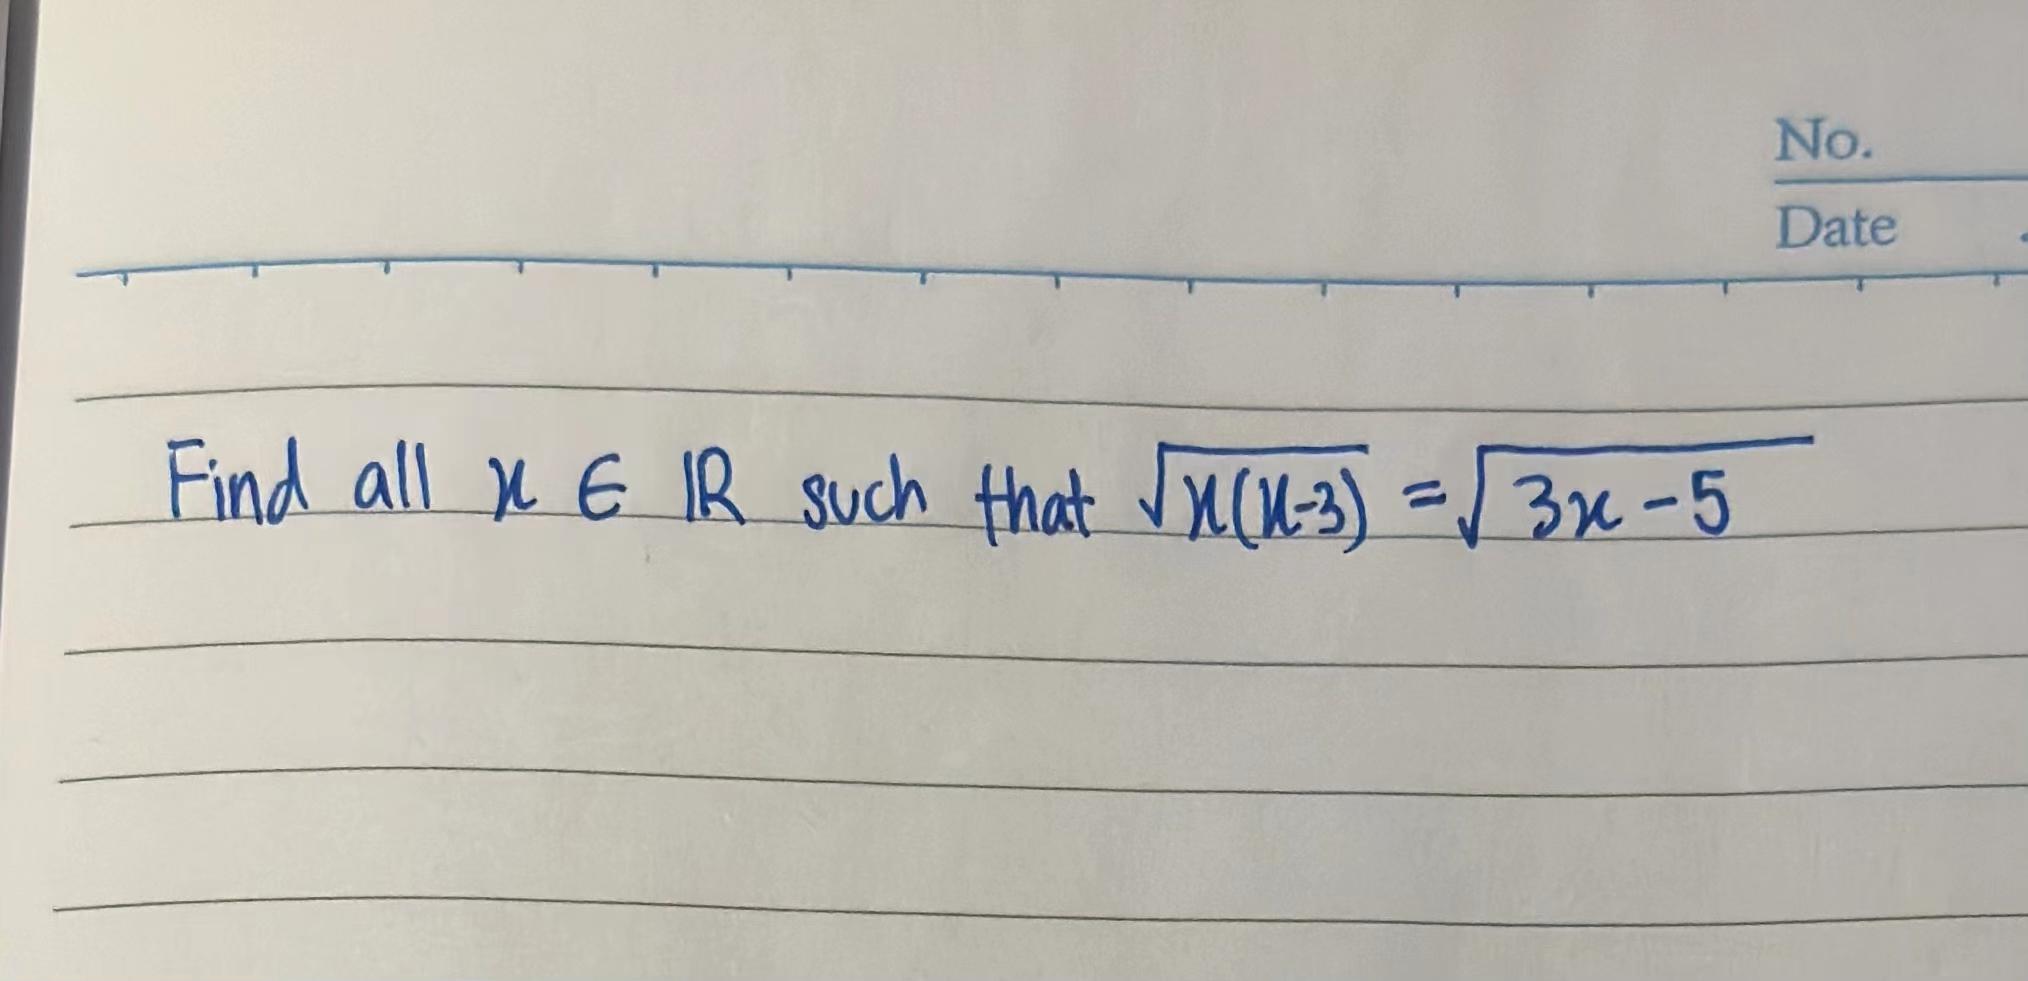 No.
Date
Find all x ∈ ℝ such that √(x(x-3)) = √(3x-5)